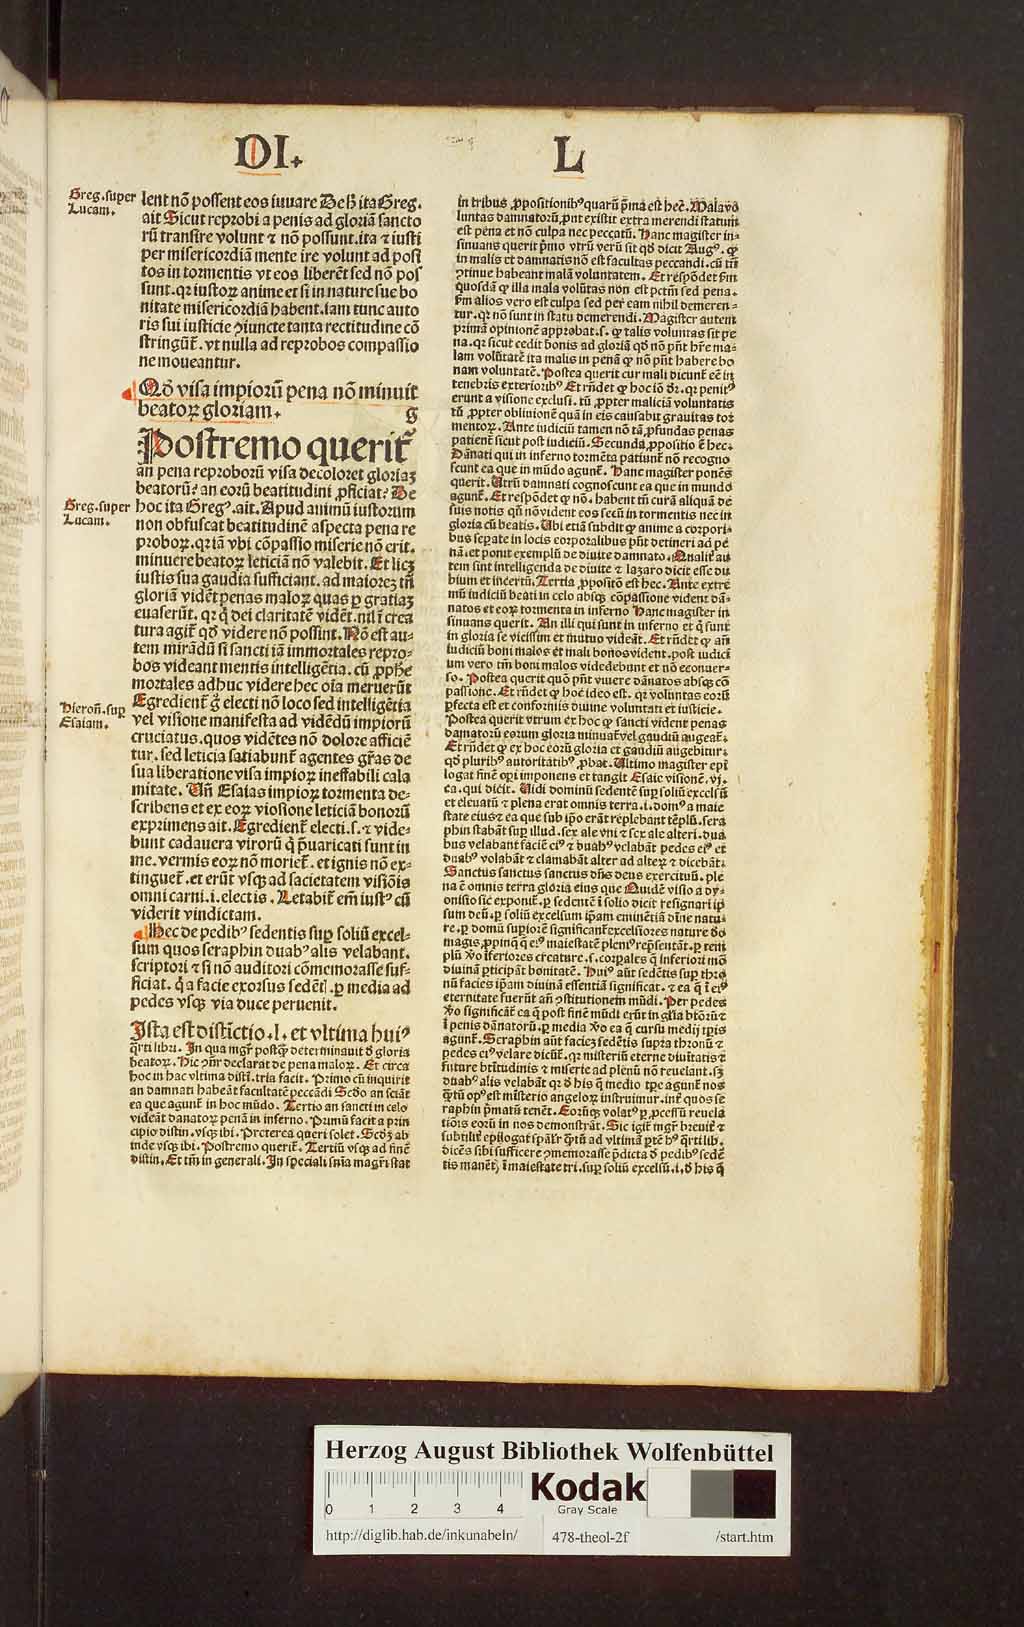 DI. L
Greg. super
Lucam.
lent nõ possent eos iuuare De hꝰ ita Greg.
ait Sicut reprobi a penis ad gloriã sancto
rũ transire volunt ⁊ nõ possunt. ita ⁊ iusti
per misericordiã mente ire volunt ad posi
tos in tormentis vt eos liberẽt sed nõ pos
sunt. qꝛ iustoꝝ anime et si in nature sue bo
nitate misericordiã habent. iam tunc auto
ris sui iusticie ꝯiuncte tanta rectitudine cõ
stringũt̃. vt nulla ad reprobos compassio
ne moueantur.
Qd̾ visa impiorũ pena nõ minuit
beatoꝝ gloriam. g
Postremo querit̃
an pena reproborũ visa decoloret gloriaꝫ
beatorũ? an eorũ beatitudini ꝓficiat? De
Greg. super
Lucam.
hoc ita Gregꝰ. ait. Apud animũ iustorum
non obfuscat beatitudinẽ aspecta pena re
proboꝝ. qꝛ iã vbi cõpassio miserie nõ erit.
minuere beatoꝝ leticiã nõ valebit. Et licꝫ
iustis sua gaudia sufficiant. ad maioreꝫ tñ
gloriã vidẽt penas maloꝝ quas ꝑ gratiaꝫ
euaserũt. qꝛ q̇ dei claritatẽ vidẽt. nil ĩ crea
tura agit̃ qd̾ videre nõ possint. Nõ est au-
tem mirãdũ si sancti iã immortales repro-
bos videant mentis intelligẽtia. cũ ꝓphe
mortales adhuc videre hec oĩa meruerũt
Hieroñ. suꝑ
Esaiam.
Egredient̃ g̊ electi nõ loco sed intelligẽtia
vel visione manifesta ad vidẽdũ impiorũ
cruciatus. quos vidẽtes nõ dolore afficiẽ
tur. sed leticia satiabunt̃ agentes gr̃as de
sua liberatione visa impioꝝ ineffabili cala
mitate. Uñ Esaias impioꝝ tormenta de-
scribens et ex eoꝝ viosione leticiã bonorũ
exprimens ait. Egredient̃ electi. s. ⁊ vide-
bunt cadauera virorũ q̇ p̃uaricati sunt in
me. vermis eoꝝ nõ moriet̃. et ignis nõ ex-
tinguet̃. et erũt vsqꝫ ad sacietatem visiõis
omni carni. i. electis. Letabit̃ em̃ iustꝰ cũ
viderit vindictam.
Hec de pedibꝰ sedentis suꝑ soliũ excel-
sum quos seraphin duabꝰ alis velabant.
scriptori ⁊ si nõ auditori cõmemorasse suf-
ficiat. q̇ a facie exorsus sedẽtꝭ. ꝑ media ad
pedes vsqꝫ via duce peruenit.
Ista est distictio. l. et vltima huiꝰ
q̃rti libri. In qua mgr̃ postꝙ̃ determinauit d̾ gloria
beatoꝝ. Hic ꝯñr declarat de pena maloꝝ. Et circa
hoc in hac vltima disti. tria facit. Primo cũ inquirit
an damnati habeãt facultatẽ peccãdi Scd̾o an sciãt
ea que agunt̃ in hoc mũdo. Tertio an sancti in celo
videãt danatoꝝ penã in inferno. Primũ facit a prin
cipio distin. vsqꝫ ibi. Preterea queri solet. Scd̾ꝫ ab
inde vsqꝫ ibi. Postremo querit̃. Tertiũ vsqꝫ ad finẽ
distin. Et tm̃ in generali. In speciali snĩa magr̃i stat
in tribus ꝓpositionibꝰ quarũ p̃ma est hec̃. Mala vo
luntas damnatorũ ꝓnt existit extra merendi statum
est pena et nõ culpa nec peccatũ. Hanc magister in-
sinuans querit p̃mo vtrũ verũ sit qd̾ dicit Augꝰ. ꝙ
in malis et damnatis nõ est facultas peccandi. cũ tñ
ꝯtinue habeant malã voluntatem. Et respõdet ẜm
quosdã ꝙ illa mala volũtas non est pctm̃ sed pena.
ẜm alios vero est culpa sed per eam nihil demeren-
tur. qꝛ nõ sunt in statu demerendi. Magister autem
primã opinionẽ approbat. s. ꝙ talis voluntas sit pe
na. qꝛ sicut cedit bonis ad gloriã qd̾ nõ pñt hr̃e ma-
lam volũtatẽ ita malis in penã ꝙ nõ pñt habere bo
nam voluntatẽ. Postea querit cur mali dicunt̃ eẽ in
tenebris exterioribꝰ Et rñdet ꝙ hoc iõ dr̃. qꝛ penitꝰ
erunt a visione exclusi. tũ ꝓpter maliciã voluntatis
tũ ꝓpter obliuionẽ quã in eis causabit grauitas tor
mentoꝝ. Ante iudiciũ tamen nõ tã ꝓfundas penas
patient̃ sicut post iudiciũ. Secunda ꝓpositio ẽ hec.
Dãnati qui in inferno tormẽta patiunt̃ nõ recogno
scunt ea que in mũdo agunt̃. Hanc magister ponẽs
querit. Utrũ damnati cognoscunt ea que in mundo
agunt̃. Et respõdet ꝙ nõ. habent tñ curã aliquã de
suis notis qũ nõ vident eos secũ in tormentis nec in
gloria cũ beatis. Ubi etiã subdit ꝙ anime a corpori-
bus seꝑate in locis corporalibus pñt detineri ad pe
nã. et ponit exemplũ de diuite damnato. Qualit̃ au
tem sunt intelligenda de diuite ⁊ lazaro dicit esse du
bium et incertũ. Tertia ꝓpositõ est hec. Ante extre
mũ iudiciũ beati in celo absqꝫ cõpassione vident dã-
natos et eoꝝ tormenta in inferno Hanc magister in
sinuans querit. An illi qui sunt in inferno et q̇ sunt
in gloria se vicissim et mutuo videãt. Et rñdet ꝙ añ
iudiciũ boni malos et mali bonos vident. post iudici
um vero tm̃ boni malos videdebunt et nõ econuer-
so. Postea querit quõ pñt viuere dãnatos absqꝫ cõ
passione. Et rñdet ꝙ hoc ideo est. qꝛ voluntas eorũ
ꝑfecta est et conformis diuine voluntati et iusticie.
Postea querit vtrum ex hoc ꝙ sancti vident penas
damnatorũ eorum gloria minuat̃ vel gaudiũ augeat̃.
Et rñdet ꝙ ex hoc eorũ gloria et gaudiũ augebitur.
qd̾ pluribꝰ autoritatibꝰ ꝓbat. Ultimo magister epi
logat finẽ oꝑi imponens et tangit Esaie visionẽ. vj.
ca. qui dicit. Uidi dominũ sedentẽ suꝑ soliũ excelsũ
et eleuatũ ⁊ plena erat omnis terra. i. domꝰ a maie
state eius ⁊ ea que sub ip̃o erãt replebant tẽplũ. sera
phin stabãt suꝑ illud. sex ale vni ⁊ sex ale alteri. dua
bus velabant faciẽ eiꝰ ⁊ duabꝰ velabãt pedes eiꝰ et
duabꝰ volabãt ⁊ clamabãt alter ad alteꝝ ⁊ dicebãt.
Sanctus sanctus sanctus dñs deus exercituũ. ple
na ẽ omnis terra gloria eius que Quidẽ visio a dy-
onisio sic exponit̃. ꝑ sedentẽ ĩ solio dicit resignari ip
sum deũ. ꝑ soliũ excelsum ip̃am eminẽtiã diuĩe natu-
re. ꝑ domũ supiorẽ significant̃ excelsiores nature d̾o
magis ꝓpinq̃ q̃ eiꝰ maiestatẽ pleniꝰ rep̃sentãt. ꝑ tem
plũ ꝟo ĩferiores creature. s. corꝑales q̃ inferiori mõ
diuinã ꝑticipãt bonitatẽ. Huiꝰ aũt sedẽtis suꝑ thro
nũ facies ip̃am diuinã essentiã significat. ⁊ ea q̃ ĩ eiꝰ
eternitate fuerũt añ ꝯstitutionem mũdi. Per pedes
ꝟo significãt̃ ea q̃ post finẽ mũdi erũt in gl̃ia btõꝝ ⁊
ĩ penis dãnatorũ. ꝑ media ꝟo ea q̃ cursu medij tp̃is
agunt̃. Seraphin aũt facieꝫ sedẽtis supra thronũ ⁊
pedes eiꝰ velare dicũt̃. qꝛ misteriũ eterne diuĩtatis ⁊
future bt̃itudinis ⁊ miserie ad plenũ nõ reuelant. sꝫ
duabꝰ alis velabãt qꝛ d̾ his q̃ medio tp̃e agunt̃ nos
q̃tũ opꝰ est mĩsterio angeloꝝ instruimur. int̃ quos se
raphin p̃matũ tenẽt. Eorũqꝫ volatꝰ ꝑ ꝓcessũ reuela
tiõis eorũ in nos demonstrãt̃. Sic igit̃ mgr̃ breuit̃ ⁊
subtilit̃ epilogat spãl̃r q̃tũ ad vltimã ꝑtẽ hꝰ q̃rti lib.
dicẽs sibi sufficere ꝯmemorasse p̃dicta d̾ pedibꝰ sedẽ
tis manẽtꝭ ĩ maiestate tri. suꝑ soliũ excelsũ. i. d̾ his q̃
Herzog August Bibliothek Wolfenbüttel
0 1 2 3 4
Kodak
Gray Scale
http://diglib.hab.de/inkunabeln/ 478-theol-2f /start.htm